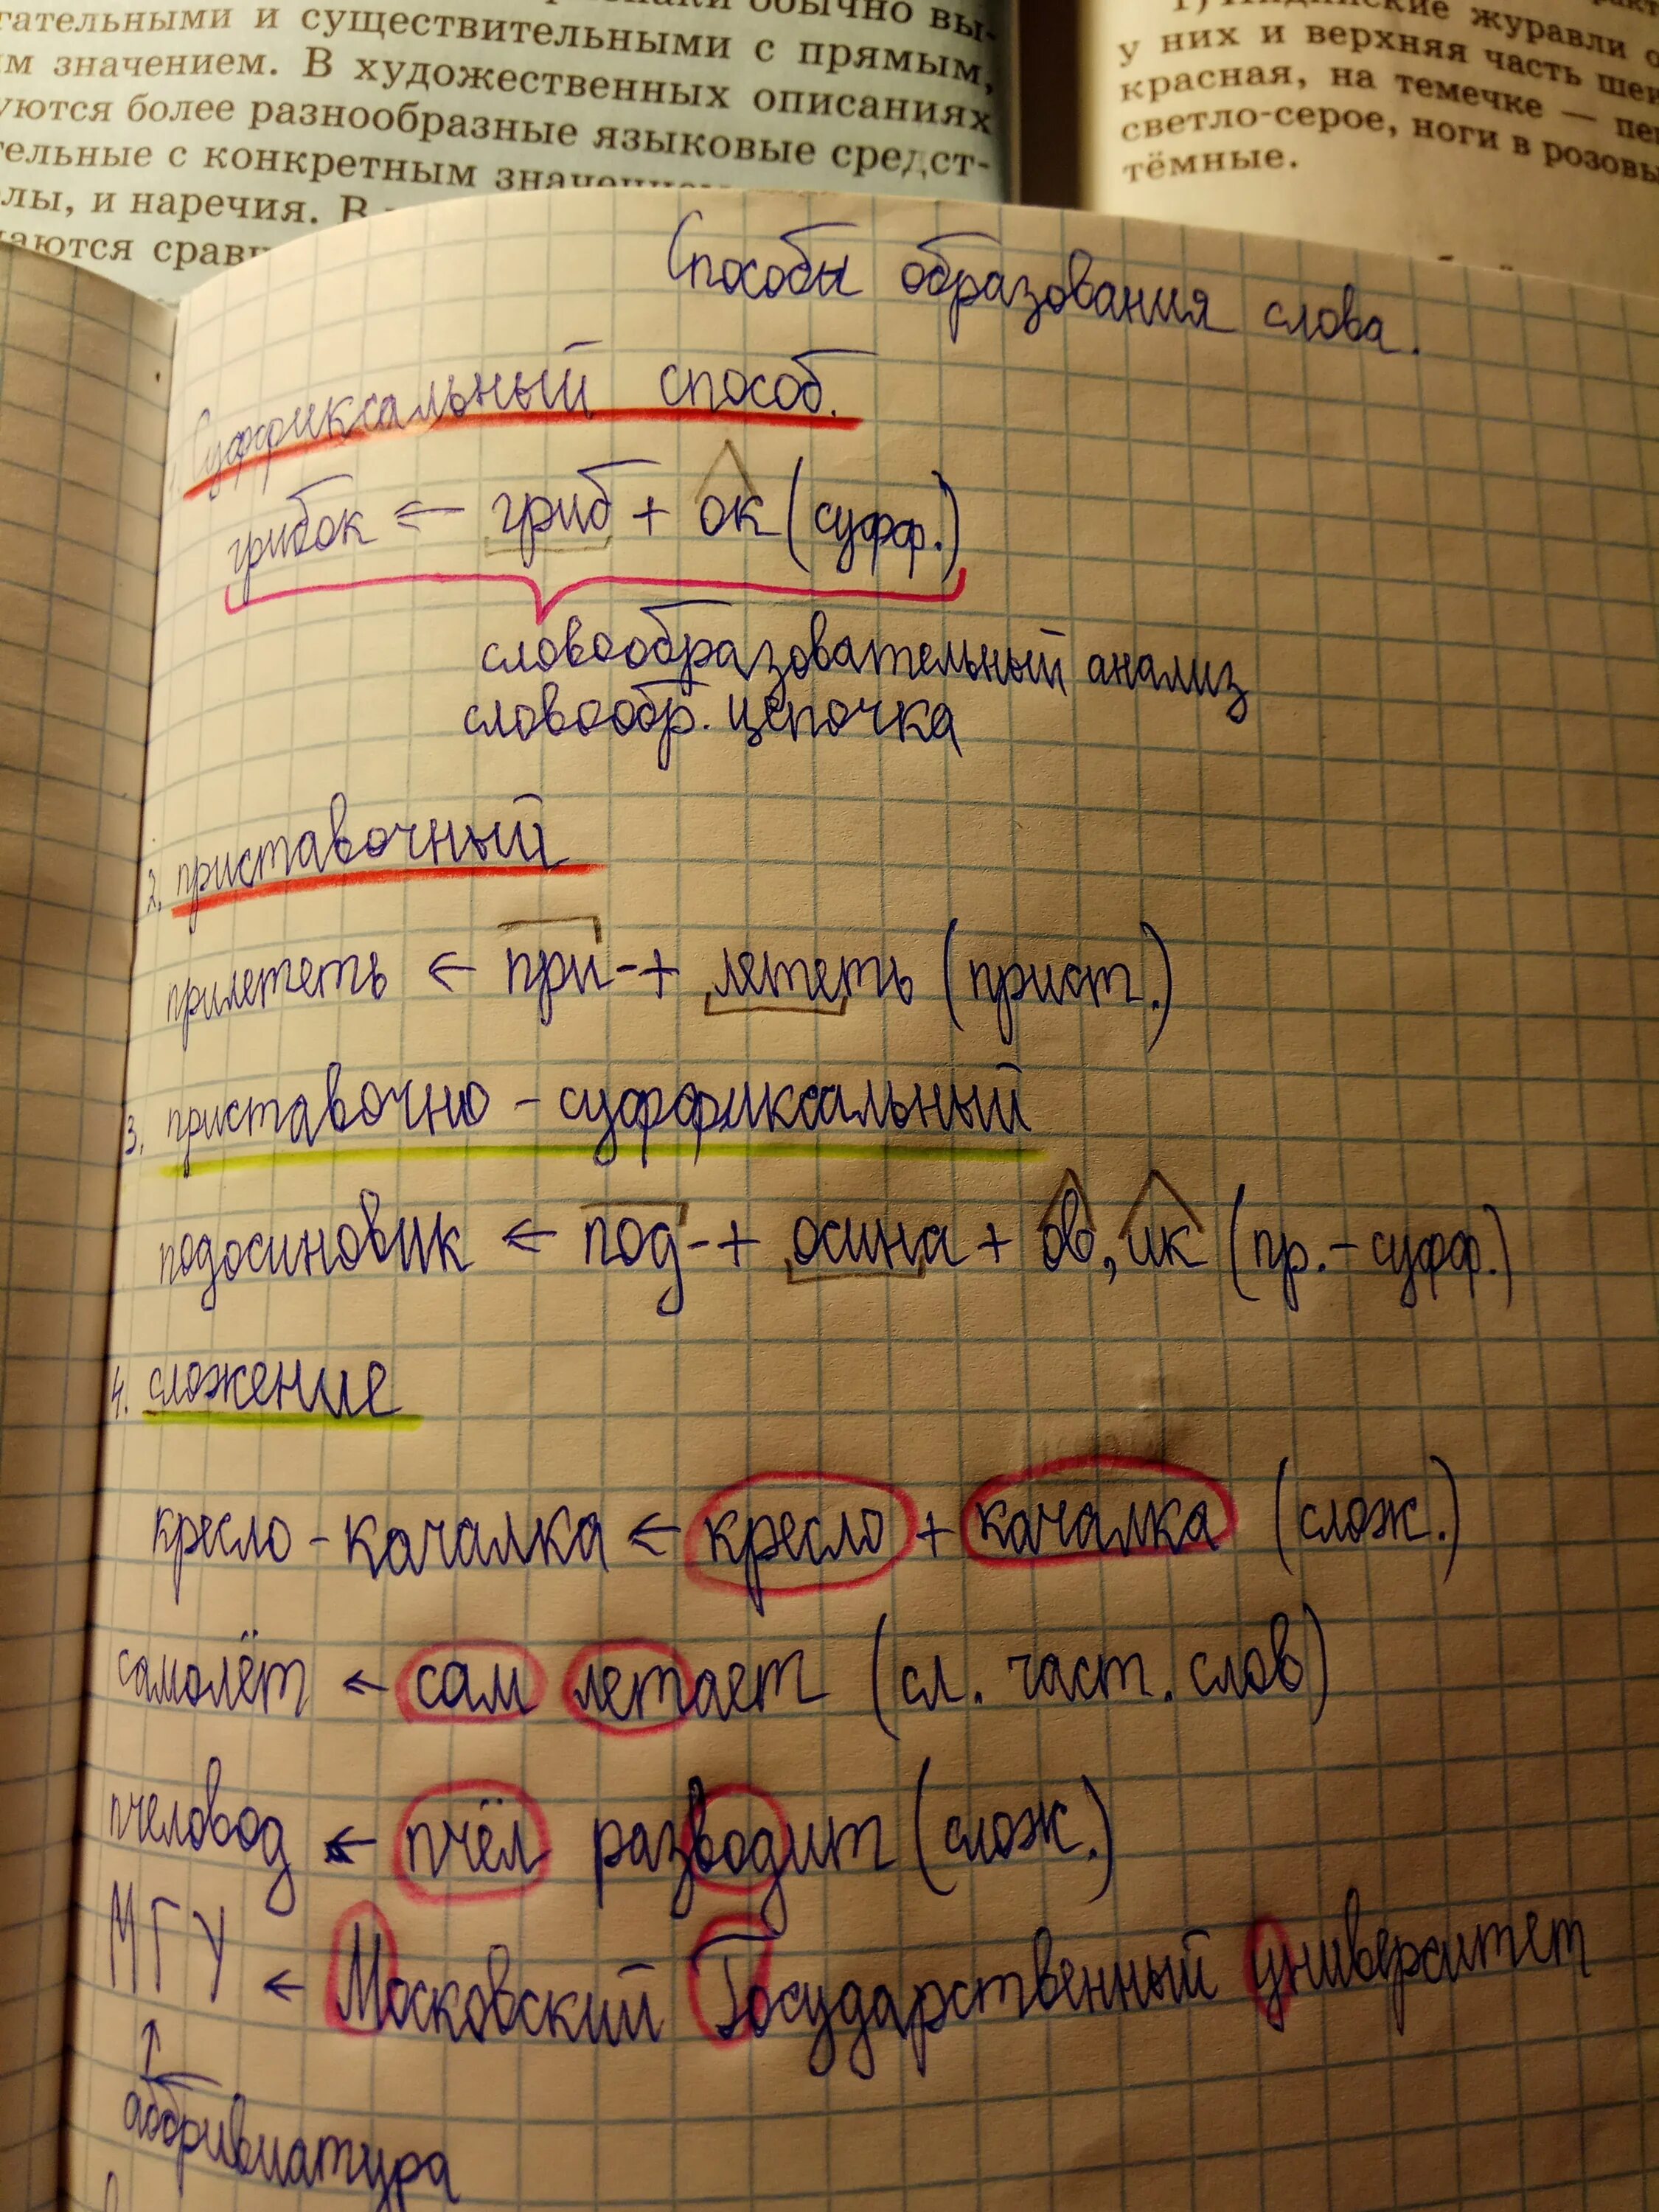 обычно вы-
гательными и существительными с прямым,
м значением. В художественных описаниях
уются более разнообразные языковые средст-
тельные с конкретным
лы, и наречия. В
аются
журавли
у них и верхняя часть шеи
красная, на темечке —
светло-серое, ноги в
тёмные.
Способы образования слова.
1. Суффиксальный способ.
грибок ← гриб + ок (суфф.)
словообразовательный анализ
словообр. цепочка
2. приставочный
прилететь ← при- + лететь (прист.)
3. приставочно-суффиксальный
подосиновик ← под- + осина + ов, ик (пр.-суфф.)
4. сложение
кресло-качалка ← кресло + качалка (слож.)
самолёт ← сам летает (сл. част. слов)
пчеловод ← пчёл разводит (слож.)
МГУ ← Московский Государственный университет
аббривиатура